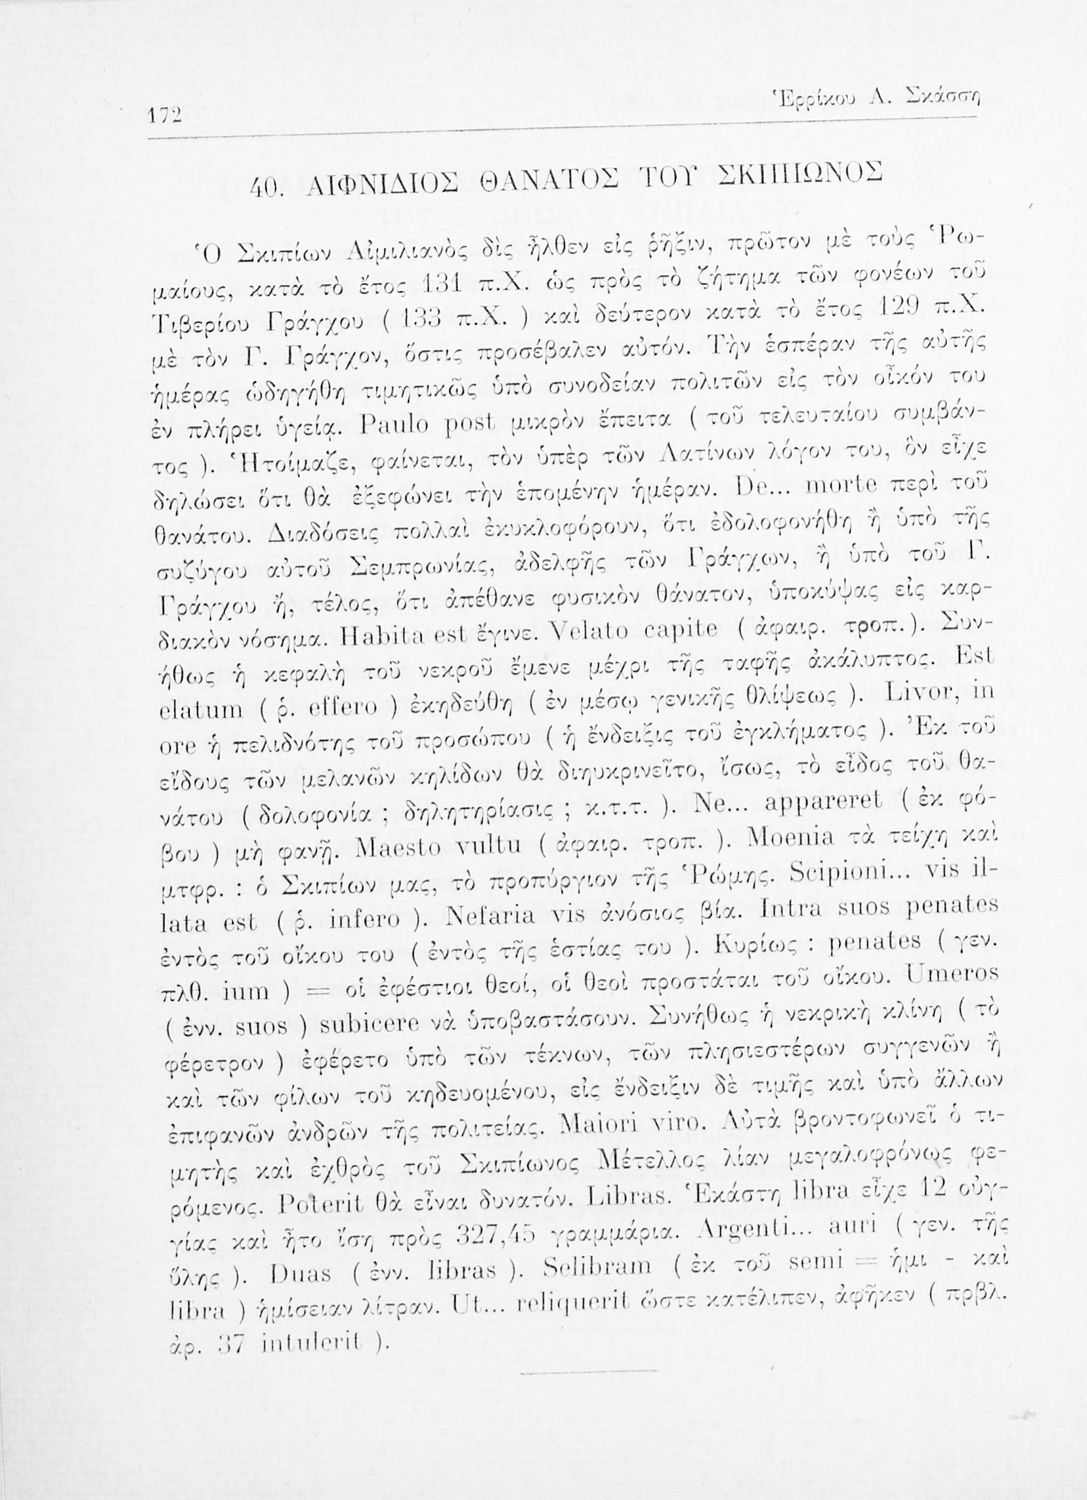 172
Ἑρρίκου Α. Σκάσση
40. ΑΙΦΝΙΔΙΟΣ ΘΑΝΑΤΟΣ ΤΟΥ ΣΚΙΠΙΩΝΟΣ
Ὁ Σκιπίων Αἰμιλιανὸς δὶς ἦλθεν εἰς ῥῆξιν, πρῶτον μὲ τοὺς Ῥω-
μαίους, κατὰ τὸ ἔτος 131 π.Χ. ὡς πρὸς τὸ ζήτημα τῶν φονέων τοῦ
Τιβερίου Γράγχου ( 133 π.Χ. ) καὶ δεύτερον κατὰ τὸ ἔτος 129 π.Χ.
μὲ τὸν Γ. Γράγχον, ὅστις προσέβαλεν αὐτόν. Τὴν ἑσπέραν τῆς αὐτῆς
ἡμέρας ὡδηγήθη τιμητικῶς ὑπὸ συνοδείαν πολιτῶν εἰς τὸν οἶκόν του
ἐν πλήρει ὑγείᾳ. Paulo post μικρὸν ἔπειτα ( τοῦ τελευταίου συμβάν-
τος ). Ἡτοίμαζε, φαίνεται, τὸν ὑπὲρ τῶν Λατίνων λόγον του, ὃν εἶχε
δηλώσει ὅτι θὰ ἐξεφώνει τὴν ἑπομένην ἡμέραν. De... morte περὶ τοῦ
θανάτου. Διαδόσεις πολλαὶ ἐκυκλοφόρουν, ὅτι ἐδολοφονήθη ἢ ὑπὸ τῆς
συζύγου αὐτοῦ Σεμπρωνίας, ἀδελφῆς τῶν Γράγχων, ἢ ὑπὸ τοῦ Γ.
Γράγχου ἤ, τέλος, ὅτι ἀπέθανε φυσικὸν θάνατον, ὑποκύψας εἰς καρ-
διακὸν νόσημα. Habita est ἔγινε. Velato capite ( ἀφαιρ. τροπ.). Συν-
ήθως ἡ κεφαλὴ τοῦ νεκροῦ ἔμενε μέχρι τῆς ταφῆς ἀκάλυπτος. Est
elatum ( ῥ. effero ) ἐκηδεύθη ( ἐν μέσῳ γενικῆς θλίψεως ). Livor, in
ore ἡ πελιδνότης τοῦ προσώπου ( ἡ ἔνδειξις τοῦ ἐγκλήματος ). Ἐκ τοῦ
εἴδους τῶν μελανῶν κηλίδων θὰ διηυκρινεῖτο, ἴσως, τὸ εἶδος τοῦ θα-
νάτου ( δολοφονία ; δηλητηρίασις ; κ.τ.τ. ). Ne... appareret ( ἐκ φό-
βου ) μὴ φανῇ. Maesto vultu ( ἀφαιρ. τροπ. ). Moenia τὰ τείχη καὶ
μτφρ. : ὁ Σκιπίων μας, τὸ προπύργιον τῆς Ῥώμης. Scipioni... vis il-
lata est ( ῥ. infero ). Nefaria vis ἀνόσιος βία. Intra suos penates
ἐντὸς τοῦ οἴκου του ( ἐντὸς τῆς ἑστίας του ). Κυρίως : penates ( γεν.
πλθ. ium ) = οἱ ἐφέστιοι θεοί, οἱ θεοὶ προστάται τοῦ οἴκου. Umeros
( ἐνν. suos ) subicere νὰ ὑποβαστάσουν. Συνήθως ἡ νεκρικὴ κλίνη ( τὸ
φέρετρον ) ἐφέρετο ὑπὸ τῶν τέκνων, τῶν πλησιεστέρων συγγενῶν ἢ
καὶ τῶν φίλων τοῦ κηδευομένου, εἰς ἔνδειξιν δὲ τιμῆς καὶ ὑπὸ ἄλλων
ἐπιφανῶν ἀνδρῶν τῆς πολιτείας. Maiori viro. Αὐτὰ βροντοφωνεῖ ὁ τι-
μητὴς καὶ ἐχθρὸς τοῦ Σκιπίωνος Μέτελλος λίαν μεγαλοφρόνως φε-
ρόμενος. Poterit θὰ εἶναι δυνατόν. Libras. Ἑκάστη libra εἶχε 12 οὐγ-
γίας καὶ ἦτο ἴση πρὸς 327,45 γραμμάρια. Argenti... auri ( γεν. τῆς
ὕλης ). Duas ( ἐνν. libras ). Selibram ( ἐκ τοῦ semi = ἡμι - καὶ
libra ) ἡμίσειαν λίτραν. Ut... reliquerit ὥστε κατέλιπεν, ἀφῆκεν ( πρβλ.
ἀρ. 37 intulerit ).